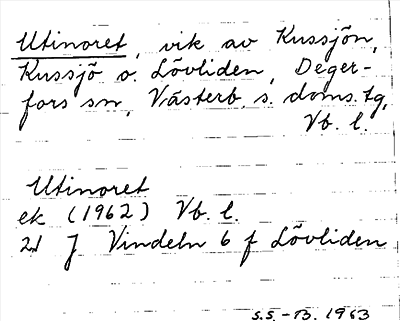 Utinoret, vik av Kussjön,
Kussjö o. Lövliden, Deger-
fors sn, Västerb. s. doms. tg,
Vb. l.
Utinoret
ek (1962) Vb. l.
21 J Vindeln 6 f Lövliden
S.S.-B. 1963